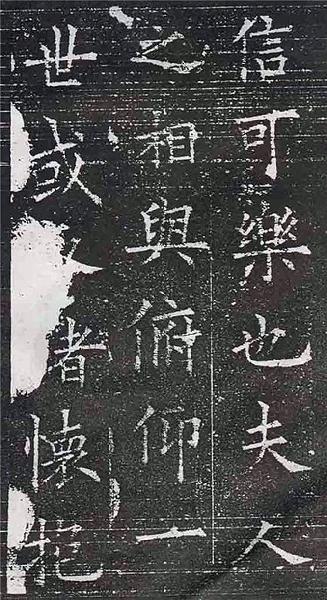 信可樂也夫人
之相與俯仰一
世或懷抱